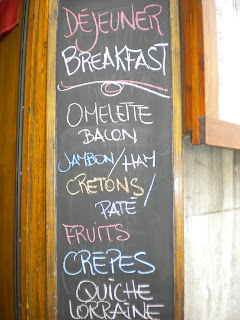 DÉJEUNER
BREAKFAST
OMELETTE
BACON
JAMBON/HAM
CRETONS/
PATÉ
FRUITS
CREPES
QUICHE
LORRAINE